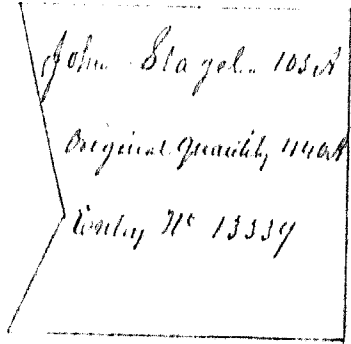 John Slagel 103 A
Original Quantity 440 A
Entry No 13339